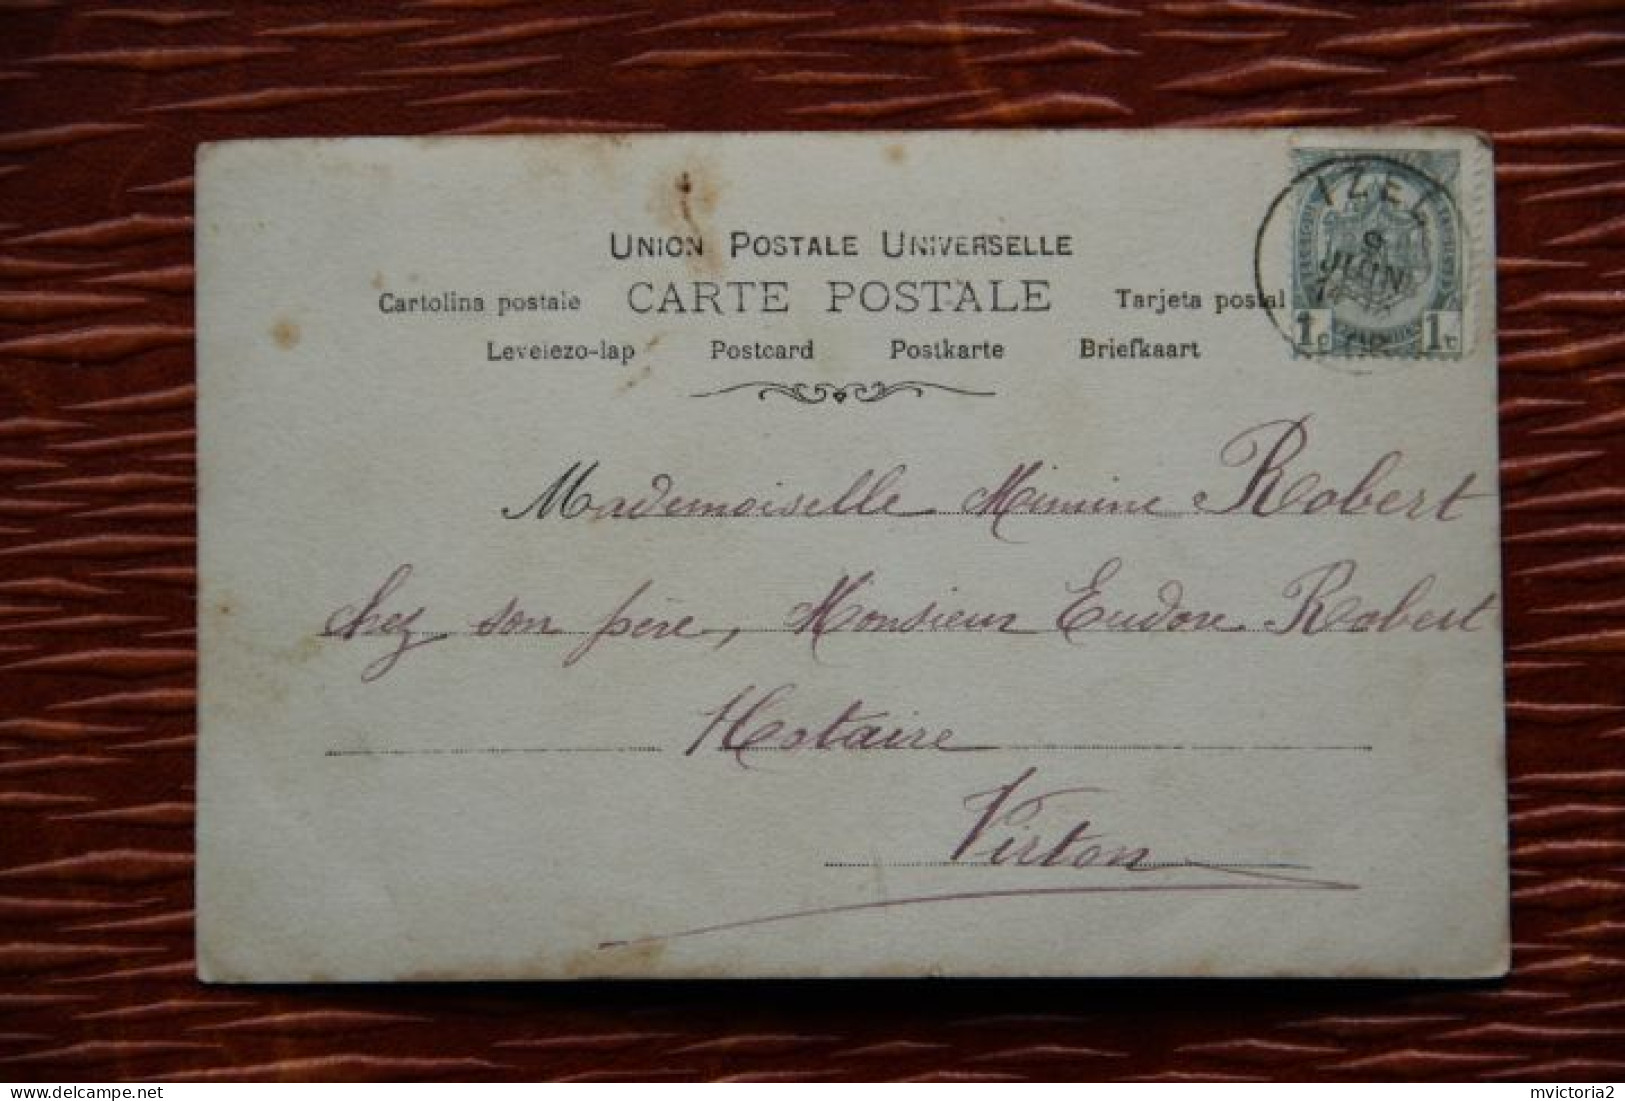 UNION POSTALE UNIVERSELLE
Cartolina postale CARTE POSTALE Tarjeta postal
Levelezo-lap Postcard Postkarte Briefkaart
IZEL
9
JUIN
1c 1c
Mademoiselle Mimine Robert
chez son père, Monsieur Eudore Robert
Notaire
Virton
delcampe.net
mvictoria2